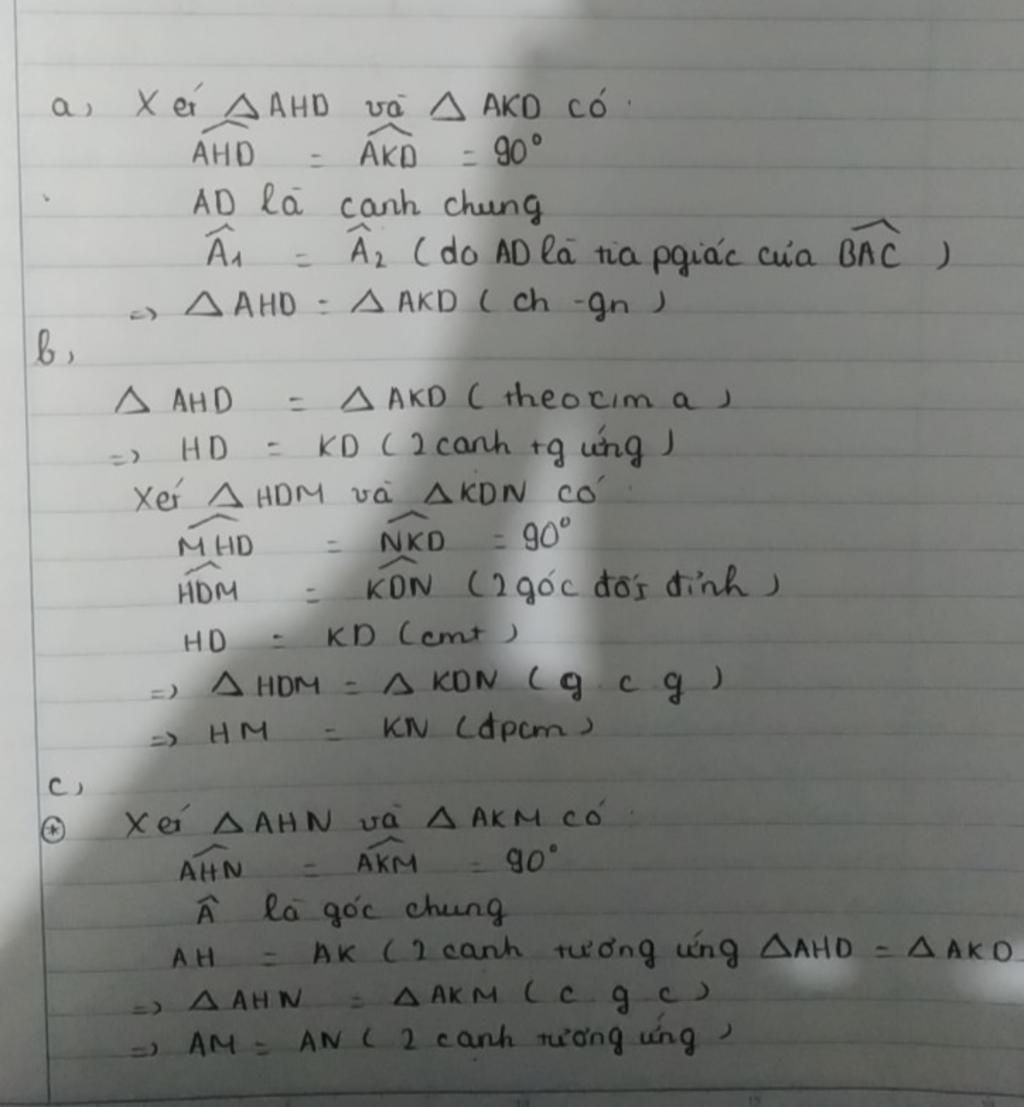 a, Xét △AHD và △ AKD có:
∠AHD = ∠AKD = 90°
AD là cạnh chung
Â₁ = Â₂ (do AD là tia pgiác của ∠BAC)
=> △ AHD = △ AKD (ch -gn)
b,
△ AHD = △ AKD (theo cm a)
=> HD = KD (2 cạnh tg ứng)
Xét △ HDM và △KDN có:
∠MHD = ∠NKD = 90°
∠HDM = ∠KDN (2 góc đối đỉnh)
HD = KD (cmt)
=> △ HDM = △ KDN (g c g)
=> HM = KN (đpcm)
c,
* Xét △AHN và △ AKM có:
∠AHN = ∠AKM = 90°
Â là góc chung
AH = AK (2 cạnh tương ứng △AHD = △AKD
=> △ AHN = △AKM (c g c)
=> AM = AN (2 cạnh tương ứng)